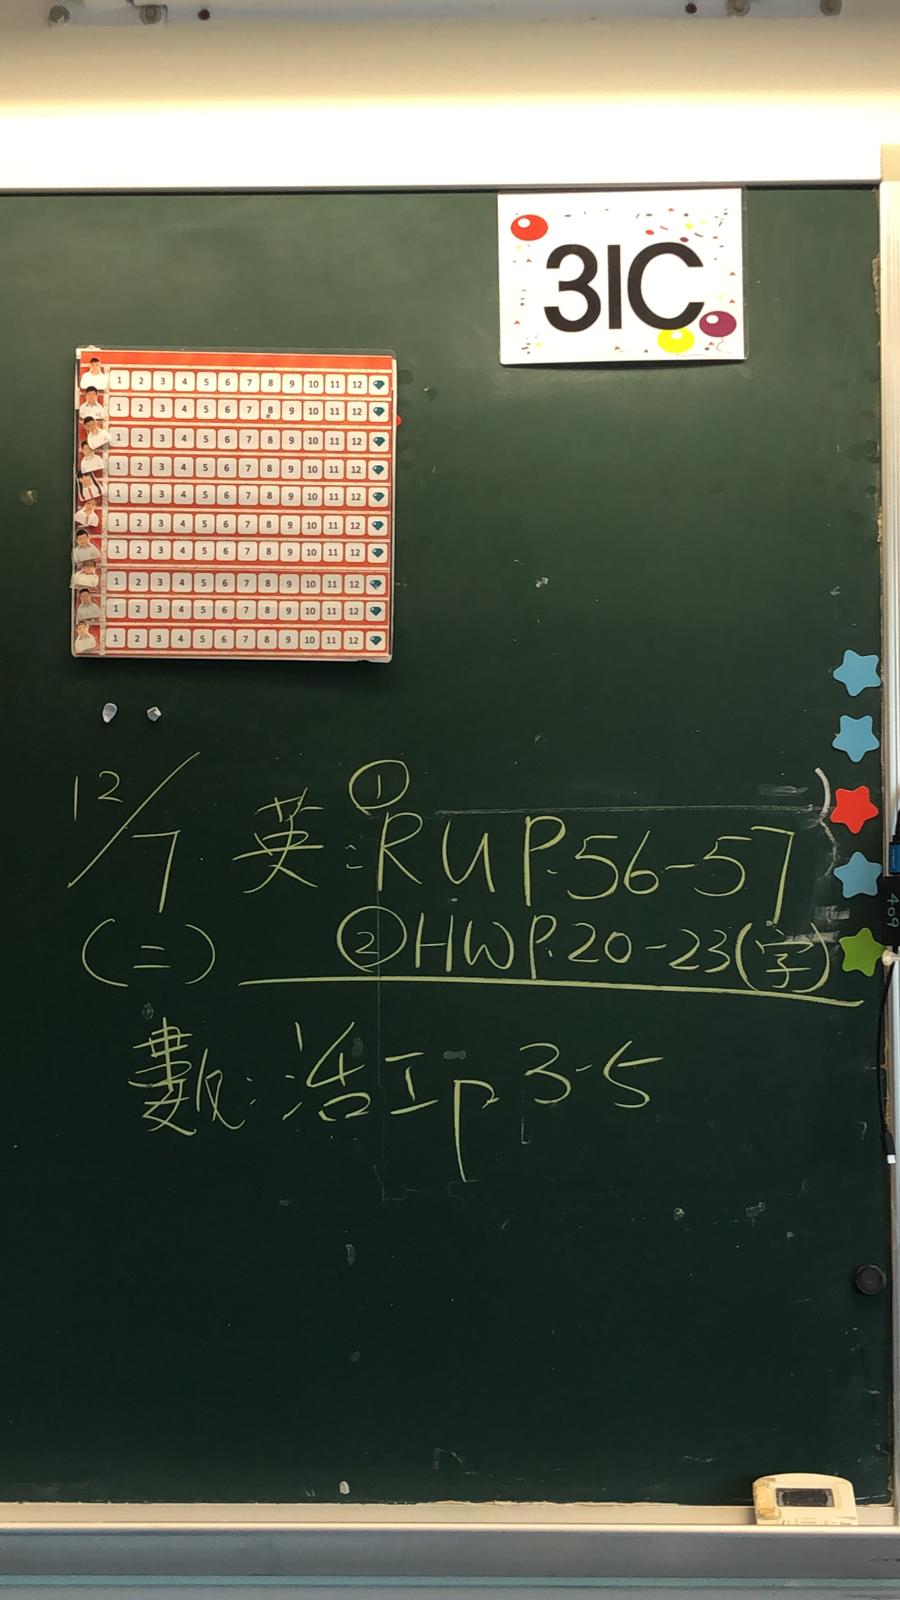 3IC
1 2 3 4 5 6 7 8 9 10 11 12
1 2 3 4 5 6 7 8 9 10 11 12
1 2 3 4 5 6 7 8 9 10 11 12
1 2 3 4 5 6 7 8 9 10 11 12
1 2 3 4 5 6 7 8 9 10 11 12
1 2 3 4 5 6 7 8 9 10 11 12
1 2 3 4 5 6 7 8 9 10 11 12
1 2 3 4 5 6 7 8 9 10 11 12
1 2 3 4 5 6 7 8 9 10 11 12
1 2 3 4 5 6 7 8 9 10 11 12
12/7 英:①RU P.56-57
(二) ②HW P.20-23(字)
數:活工p.3-5
409